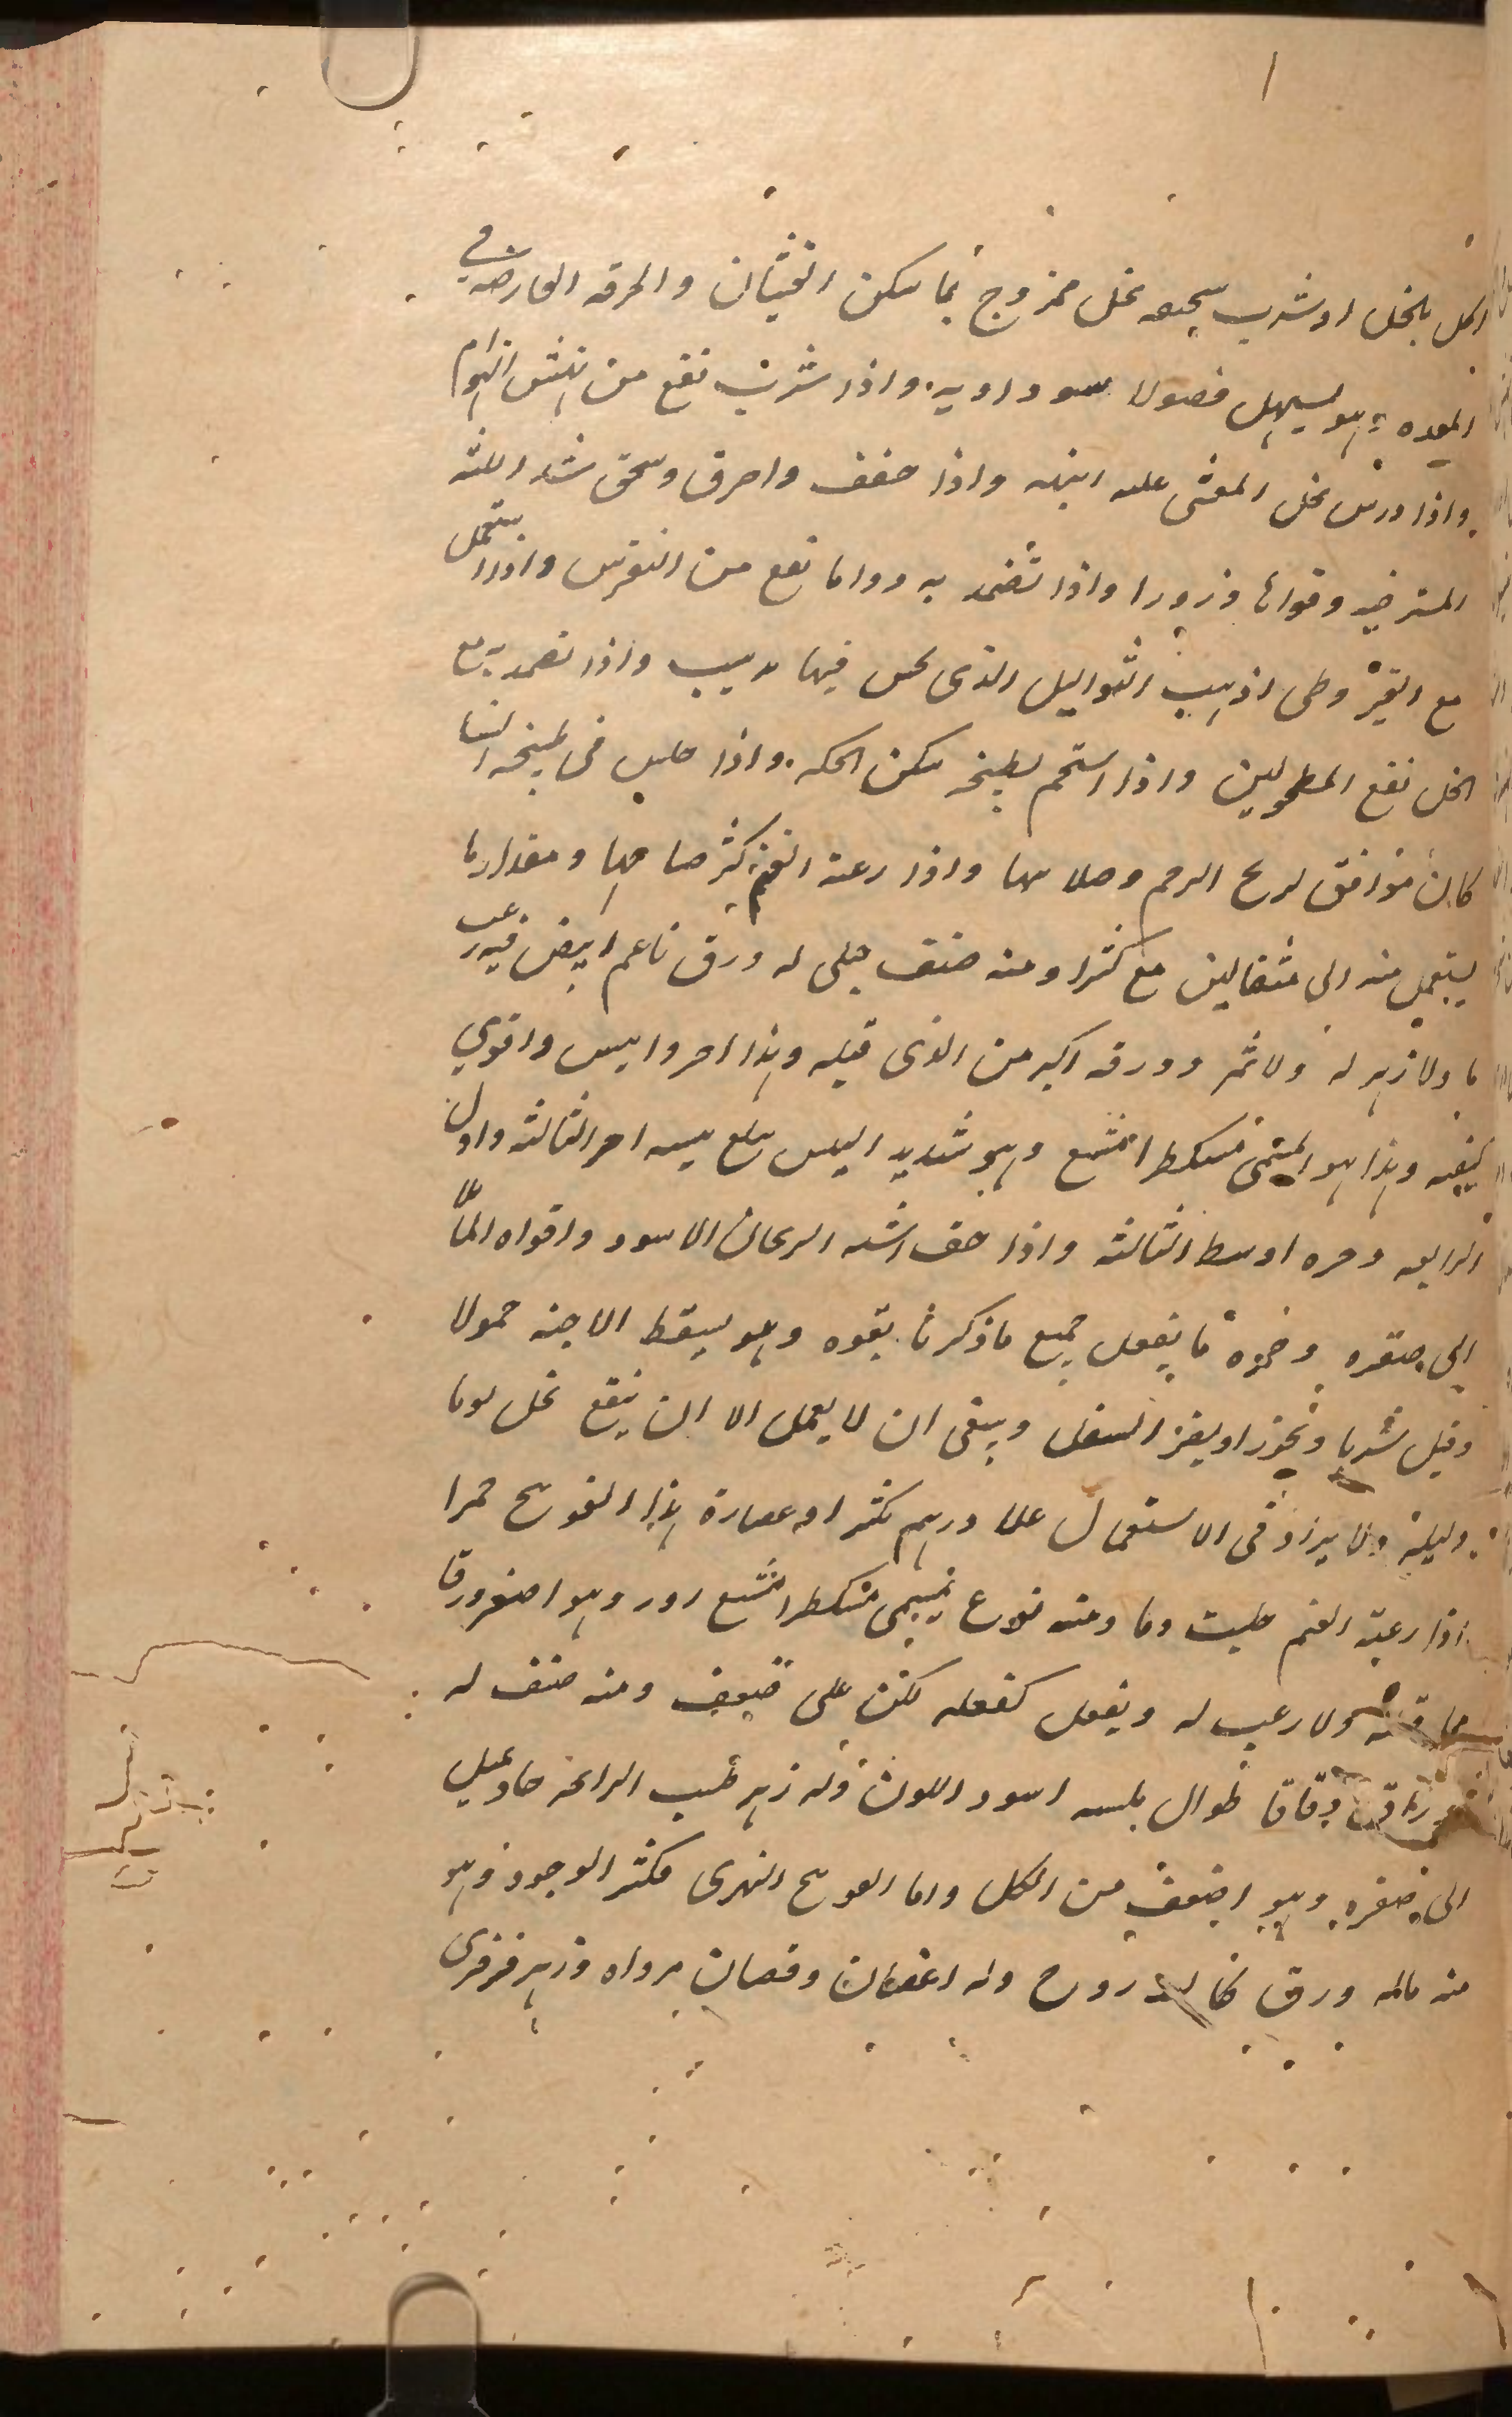 اكل بالخل او شرب سحيقه بخل ممزوج بما سكن الغثيان والحرقه العارضه في
المعده وهو يسهل فضولا سوداويه واذا شرب نفع من نهش الهوام
واذا ورس بخل المغشى عليه انبهه واذا جفف واحرق وسحق شد اللثه
المسترخيه وقواها ذرورا واذا تضمد به دواما نفع من النقرس واذا استعمل
مع القيروطى اذهب الثواليل الذى يحس فيها بدبيب واذا تضمد به مع
الخل نفع المطحولين واذا استحم بطبيخه سكن الحكه واذا جلس فى طبيخه النسا
كان موافق لريح الرحم وصلابتها واذا رعته الغنم كثر صياحها ومقدار ما
يستعمل منه الى مثقالين مع كثيرا ومنه صنف جبلى له ورق ناعم ابيض فيه زغب
ما ولا زهر له ولا ثمر وورقه اكبر من الذى قبله وهذا احر وايبس واقوي
كيفيه وهذا هو المسمى مشكطرامشيع وهو شديد اليبس يبلغ يبسه اخر الثالثه واول
الرابعه وحره اوسط الثالثه واذا جف اشبه الريحان الاسود واقواه المايل
الى صفره وخمره ما يفعل جميع ما ذكرنا بقوه وهو يسقط الاجنه حمولا
وقيل شربا وبخورا ويغزر السفلى وينبغى ان لا يعمل الا ان ينقع بخل يوما
وليلة ولا يزاد فى الاستعمال على درهم بكثيرا وعصارة هذا الفوتنج حمرا
اذا رعته الغنم حلبت دما ومنه نوع يسمى مشكطرامشيع زور وهو اصغر ورقا
مما قبله ولا زغب له ويفعل كفعله لكن على ضعف ومنه صنف له
دقاقا طوال يابسه اسود اللون وله زهر طيب الرائحه حاد يميل
الى صفره وهو اضعف من الكل واما الفوتنج النهرى فكثير الوجود وهو
منه ماله ورق كالباذروج وله اغصان وقضبان مزواه وزهر فرفرى